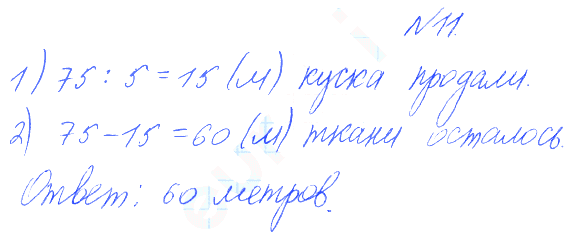 №11.
1) 75 : 5 = 15 (м) куска продали.
2) 75 - 15 = 60 (м) ткани осталось.
Ответ: 60 метров.